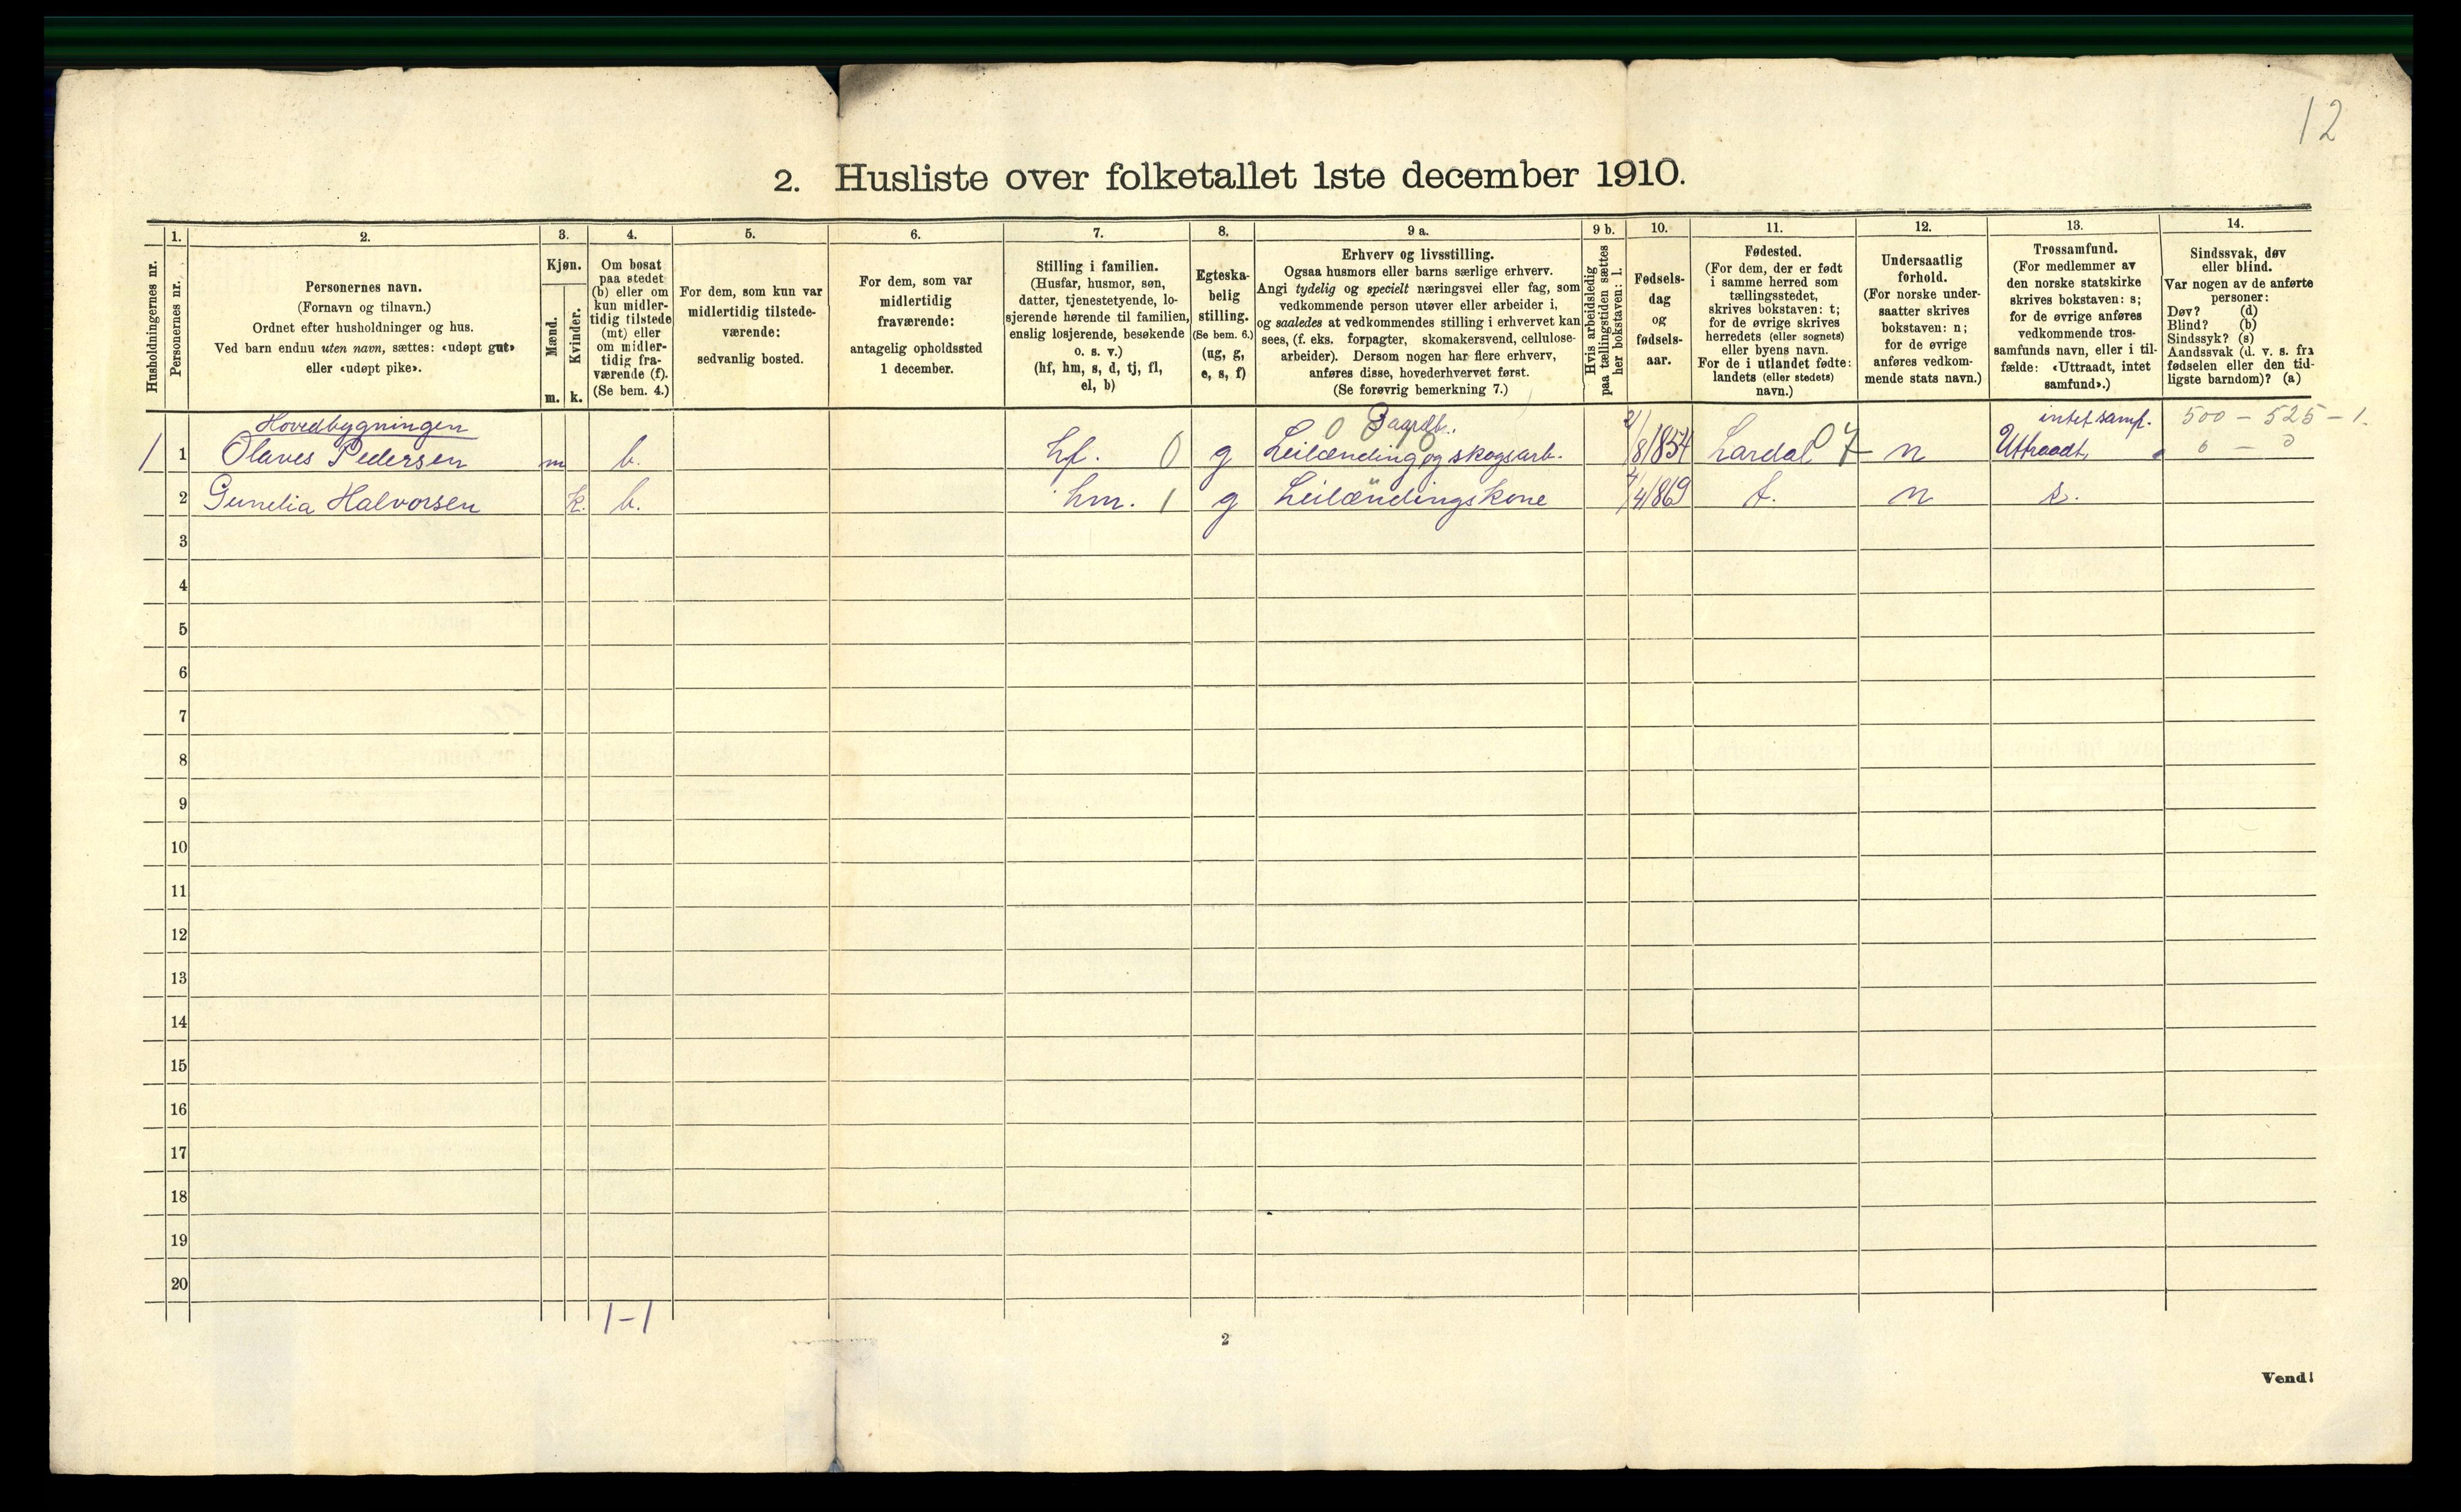 12
2. Husliste over folketallet 1ste december 1910.
Husholdningernes nr.
1.
Personernes nr.
2.
Personernes navn.
(Fornavn og tilnavn.)
Ordnet efter husholdninger og hus.
Ved barn endnu uten navn, sættes: «udøpt gut»
eller «udøpt pike».
3.
Kjøn.
Mænd.
Kvinder.
m. k.
4.
Om bosat
paa stedet
(b) eller om
kun midler-
tidig tilstede
(mt) eller
om midler-
tidig fra-
værende (f).
(Se bem. 4.)
5.
For dem, som kun var
midlertidig tilstede-
værende:
sedvanlig bosted.
6.
For dem, som var
midlertidig
fraværende:
antagelig opholdssted
1 december.
7.
Stilling i familien.
(Husfar, husmor, søn,
datter, tjenestetyende, lo-
sjerende hørende til familien,
enslig losjerende, besøkende
o. s. v.)
(hf, hm, s, d, tj, fl,
el, b)
8.
Egteska-
belig
stilling.
(Se bem. 6.)
(ug, g,
e, s, f)
9 a.
Erhverv og livsstilling.
Ogsaa husmors eller barns særlige erhverv.
Angi tydelig og specielt næringsvei eller fag, som
vedkommende person utøver eller arbeider i,
og saaledes at vedkommendes stilling i erhvervet kan
sees, (f. eks. forpagter, skomakersvend, cellulose-
arbeider). Dersom nogen har flere erhverv,
anføres disse, hovederhvervet først.
(Se forøvrig bemerkning 7.)
9 b.
Hvis arbeidsledig
paa tællingstiden sættes
her bokstaven: l.
10.
Fødsels-
dag
og
fødsels-
aar.
11.
Fødested.
(For dem, der er født
i samme herred som
tællingsstedet,
skrives bokstaven: t;
for de øvrige skrives
herredets (eller sognets)
eller byens navn.
For de i utlandet fødte:
landets (eller stedets)
navn.)
12.
Undersaatlig
forhold.
(For norske under-
saatter skrives
bokstaven: n;
for de øvrige
anføres vedkom-
mende stats navn.)
13.
Trossamfund.
(For medlemmer av
den norske statskirke
skrives bokstaven: s;
for de øvrige anføres
vedkommende tros-
samfunds navn, eller i til-
fælde: «Uttraadt, intet
samfund».)
14.
Sindssvak, døv
eller blind.
Var nogen av de anførte
personer:
Døv? (d)
Blind? (b)
Sindssyk? (s)
Aandssvak (d. v. s. fra
fødselen eller den tid-
ligste barndom)? (a)
Hovedbygningen
intet samf. 500 - 525 - 1.
1 1 Olaves Pedersen m b. hf. 0 g Leilænding og skogsarb. /8/854 Lardal 07 n Uttraadt, 0 - 0
2 Gunelia Halvorsen k. b. hm. 1 g Leilændingskone /4/869 t. n s.
3
4
5
6
7
8
9
10
11
12
13
14
15
16
17
18
19
20
1-1
2
Vend!